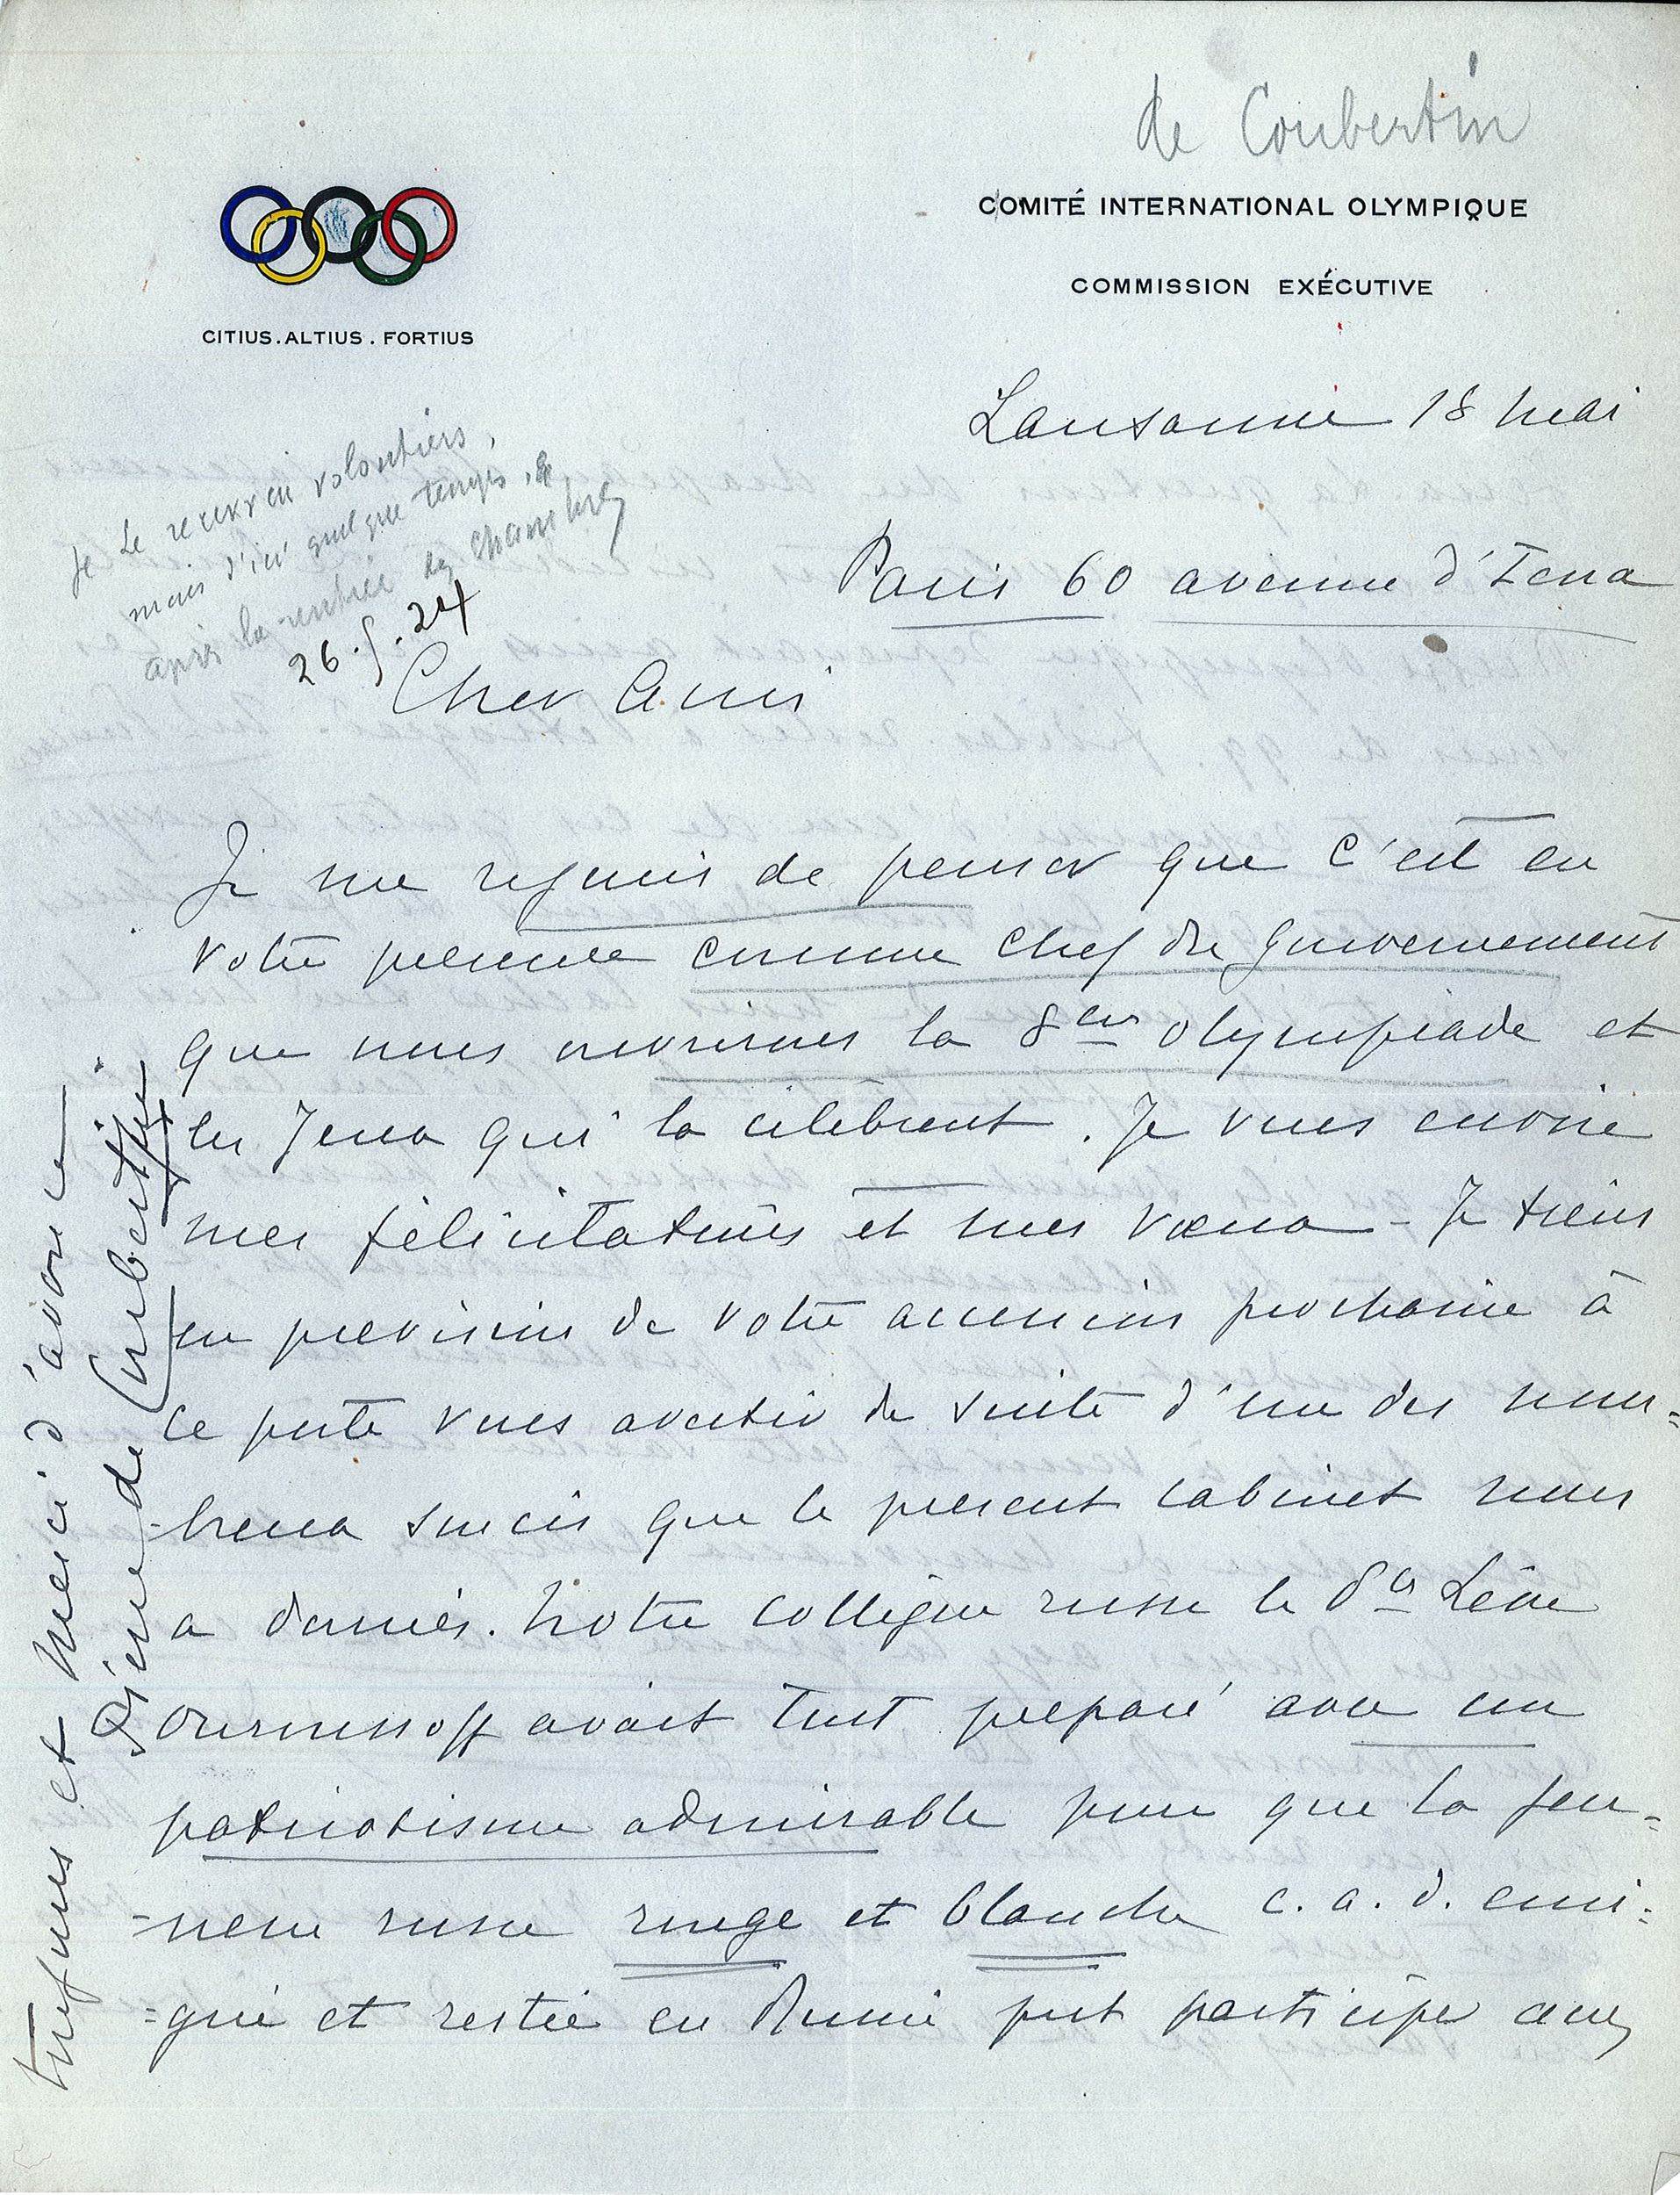 de Coubertin
COMITÉ INTERNATIONAL OLYMPIQUE
COMMISSION EXÉCUTIVE
CITIUS.ALTIUS.FORTIUS
Lausanne 18 Mai
Paris 60 avenue d'Iena
Je le recevrai volontiers,
mais d'ici quelque temps, &
après la rentrée des Chambres
26.5.24
Cher Ami
Je me rejouis de penser que c'est en
votre presence comme chef du gouvernement
que nous ouvrirons la 8eme olympiade et
les Jeux qui la célèbrent. Je vous envoie
mes félicitations et mes vœux - Je tiens
en prevision de votre accession prochaine à
ce poste vous avertir de suite d'un des nom=
=breux soucis que le present cabinet nous
a donnés. Notre collègue russe le Pce Léon
Ouroussoff avait tout preparé avec un
patriotisme admirable pour que la jeu=
=nesse russe rouge et blanche c. a. d. emi=
=grée et restée en Russie put participer aux
toujours et Merci d'avance
Pierre de Coubertin